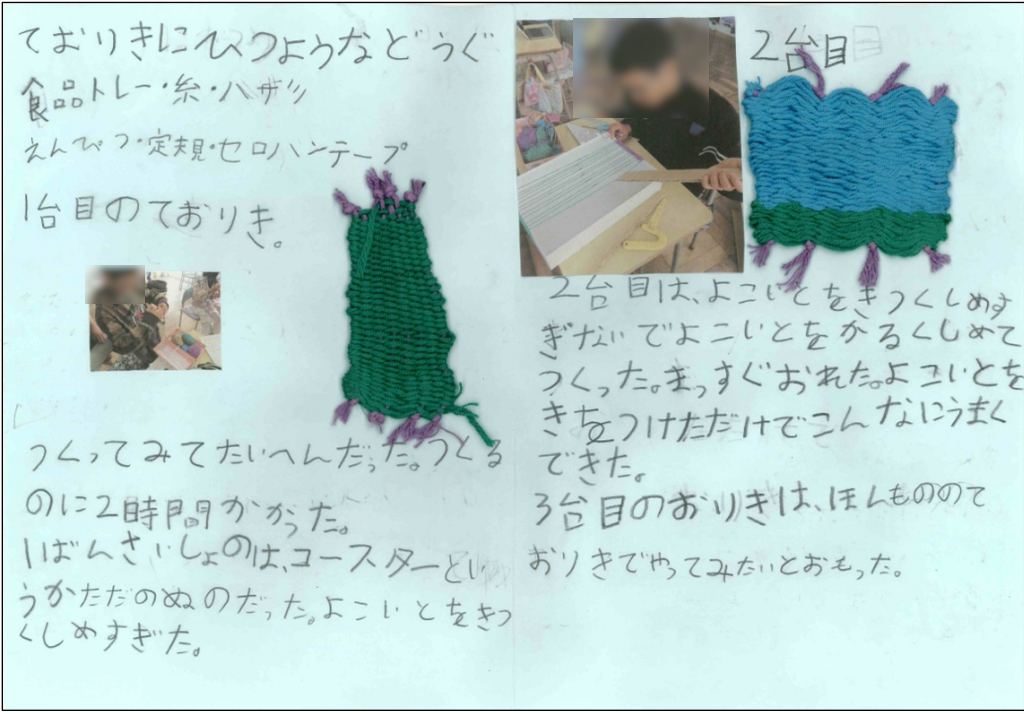 ておりきにひつようなどうぐ
食品トレー・糸・ハサミ
えんぴつ・定規・セロハンテープ
1台目のておりき。
つくってみてたいへんだった。つくる
のに2時間かかった。
1ばんさいしょのは、コースターとい
うかただのぬのだった。よこいとをきつ
くしめすぎた。
2台目
2台目は、よこいとをきつくしめす
ぎないでよこいとをかるくしめて
つくった。まっすぐおれた。よこいとを
きをつけただけでこんなにうまく
できた。
3台目のおりきは、ほんもののて
おりきでやってみたいとおもった。